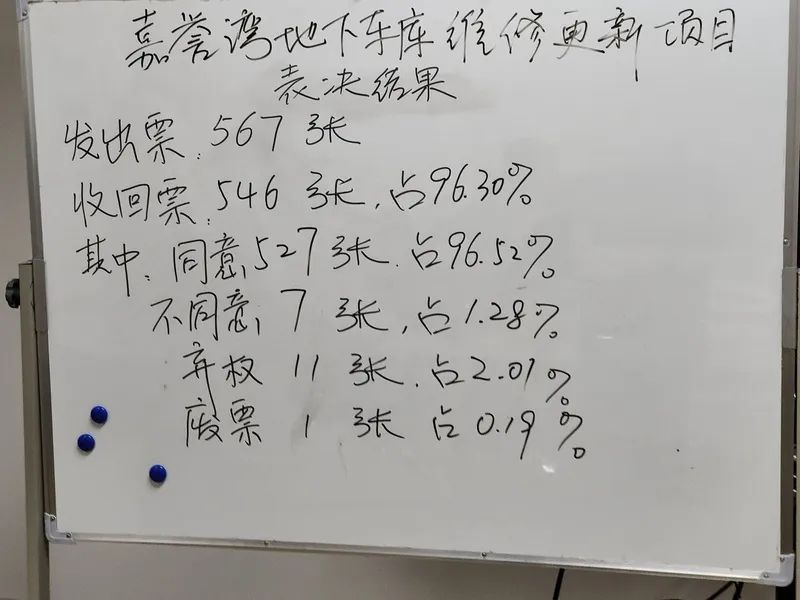 嘉誉湾地下车库维修更新项目
表决结果
发出票:567张
收回票:546张,占96.30%
其中:同意:527张,占96.52%
不同意:7张,占1.28%
弃权 11张,占2.01%
废票 1张 占0.19%